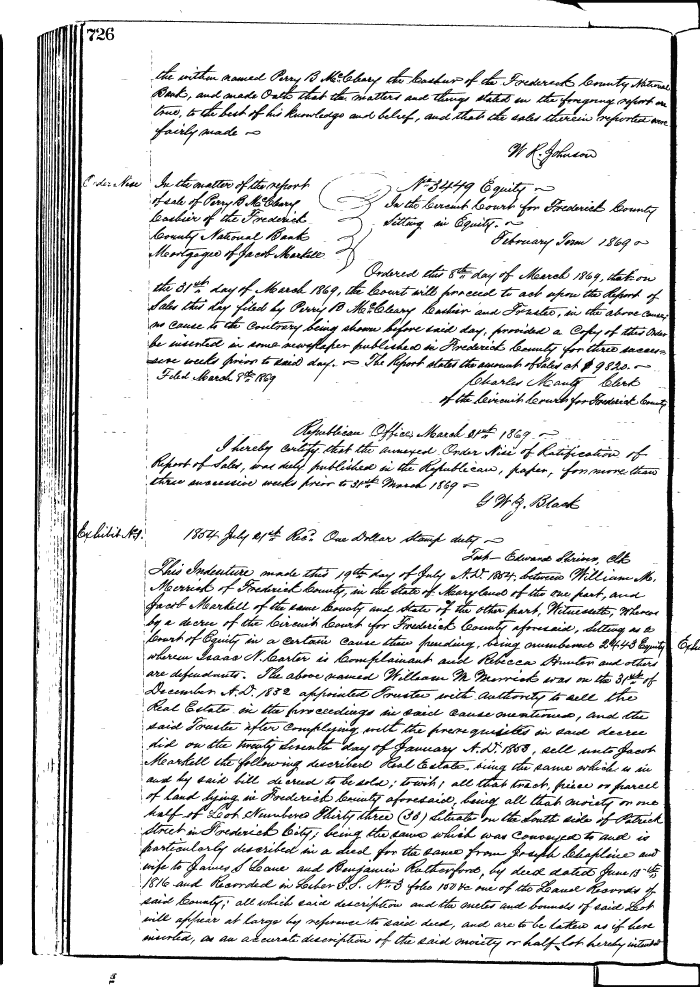 726
the within named Perry B McCleary the Cashier of the Frederick County National
Bank, and made Oath that the matters and things stated in the foregoing report are
true, to the best of his knowledge and belief, and that the sales therein reported were
fairly made
W R. Johnson
Order Nisi
In the matter of the report
of sale of Perry B McCleary
Cashier of the Frederick
County National Bank
Mortgagee of Jacob Markell
No 3449 Equity
In the Circuit Court for Frederick County
Sitting in Equity.
February Term 1869
Ordered this 8th day of March 1869, that on
the 31st day of March 1869, the Court will proceed to act upon the Report of
Sales this day filed by Perry B McCleary Cashier and Trustee, in the above cause,
no cause to the contrary being shown before said day, provided a Copy of this Order
be inserted in some newspaper published in Frederick County for three succes-
sive weeks prior to said day. The Report states the amount of Sales at $9820.
Filed March 8th 1869
Charles Mantz Clerk
of the Circuit Court for Frederick County
Republican Office, March 31st 1869
I hereby certify, that the annexed Order Nisi of Ratification of
Report of Sales, was duly published in the Republican, paper, for more than
three successive weeks prior to 31st March 1869
G W Z. Black
Exhibit No 1.
1854 July 21st Recd. One Dollar Stamp duty
Test Edward Shriver, Clk
This Indenture made this 19th day of July A.D. 1854, between William M.
Merrick of Frederick County, in the State of Maryland of the one part, and
Jacob Markell of the same County and State of the other part, Witnesseth, whereas
by a decree of the Circuit Court for Frederick County aforesaid, Sitting as a
Court of Equity in a certain cause then pending, being numbered 2443 Equity
wherein Isaac N. Carter is Complainant and Rebecca Hunton and others
are defendants. The above named William M Merrick was on the 31st of
December A.D. 1832 appointed Trustee with authority to sell the
Real Estate in the proceedings in said cause mentioned, and the
said Trustee after complying with the prerequisites in said decree
did on the twenty Seventh day of January A.D. 1853, sell unto Jacob
Markell the following described Real Estate. being the same which is in
and by said bill decreed to be sold; to wit; all that tract, piece or parcel
of land lying in Frederick County aforesaid, being all that moiety or one
half of Lot Numbered Thirty three (33) Situate on the South side of Patrick
street in Frederick City; being the same which was conveyed to and is
particularly described in a deed for the same from Joseph Chapline and
wife to James S Lane and Benjamin Rutherford, by deed dated June 13th
1816 and Recorded in Liber J.S. No 3 folio 150 &c one of the Land Records of
said County; all which said description and the metes and bounds of said Lot
will appear at large by reference to said deed, and are to be taken as if here
inserted, as an accurate description of the said moiety or half lot hereby intended